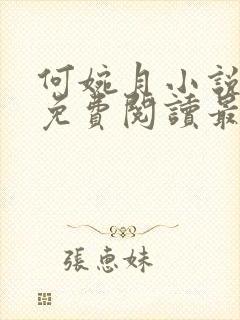 何婉月小說
免費閱讀最
張惠妹